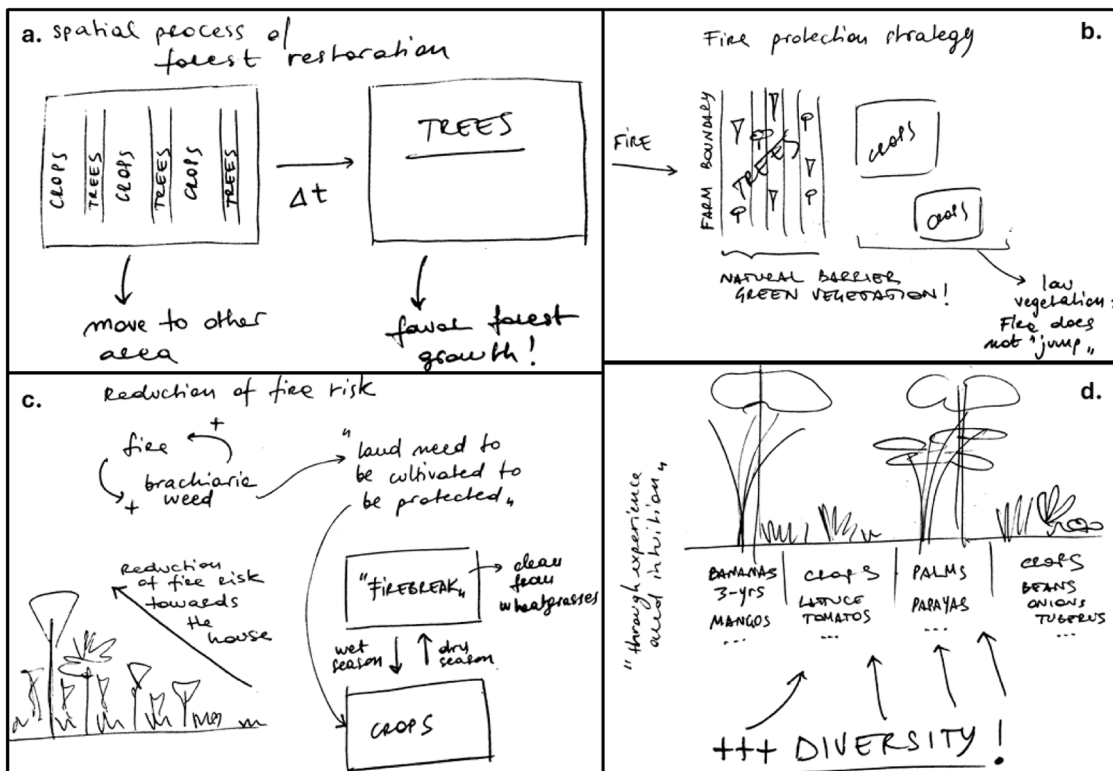 a. spatial process of
forest restoration
CROPS
TREES
CROPS
TREES
CROPS
TREES
Δt
TREES
move to other
area
favor forest
growth!
b.
Fire protection strategy
FIRE
FARM BOUNDARY
TREES
CROPS
CROPS
NATURAL BARRIER
GREEN VEGETATION!
low
vegetation:
Fire does
not "jump"
c.
Reduction of fire risk
+
fire
+
brachiaria
weed
"land need to
be cultivated to
be protected"
Reduction
of fire risk
towards
the
house
"FIREBREAK"
clean
from
wheatgrasses
wet
season
dry
season
CROPS
d.
"through experience
and intuition"
BANANAS
3-yrs
MANGOS
...
CROPS
LATTUCE
TOMATOS
...
PALMS
PAPAYAS
...
CROPS
BEANS
ONIONS
TUBERUS
...
+++ DIVERSITY!